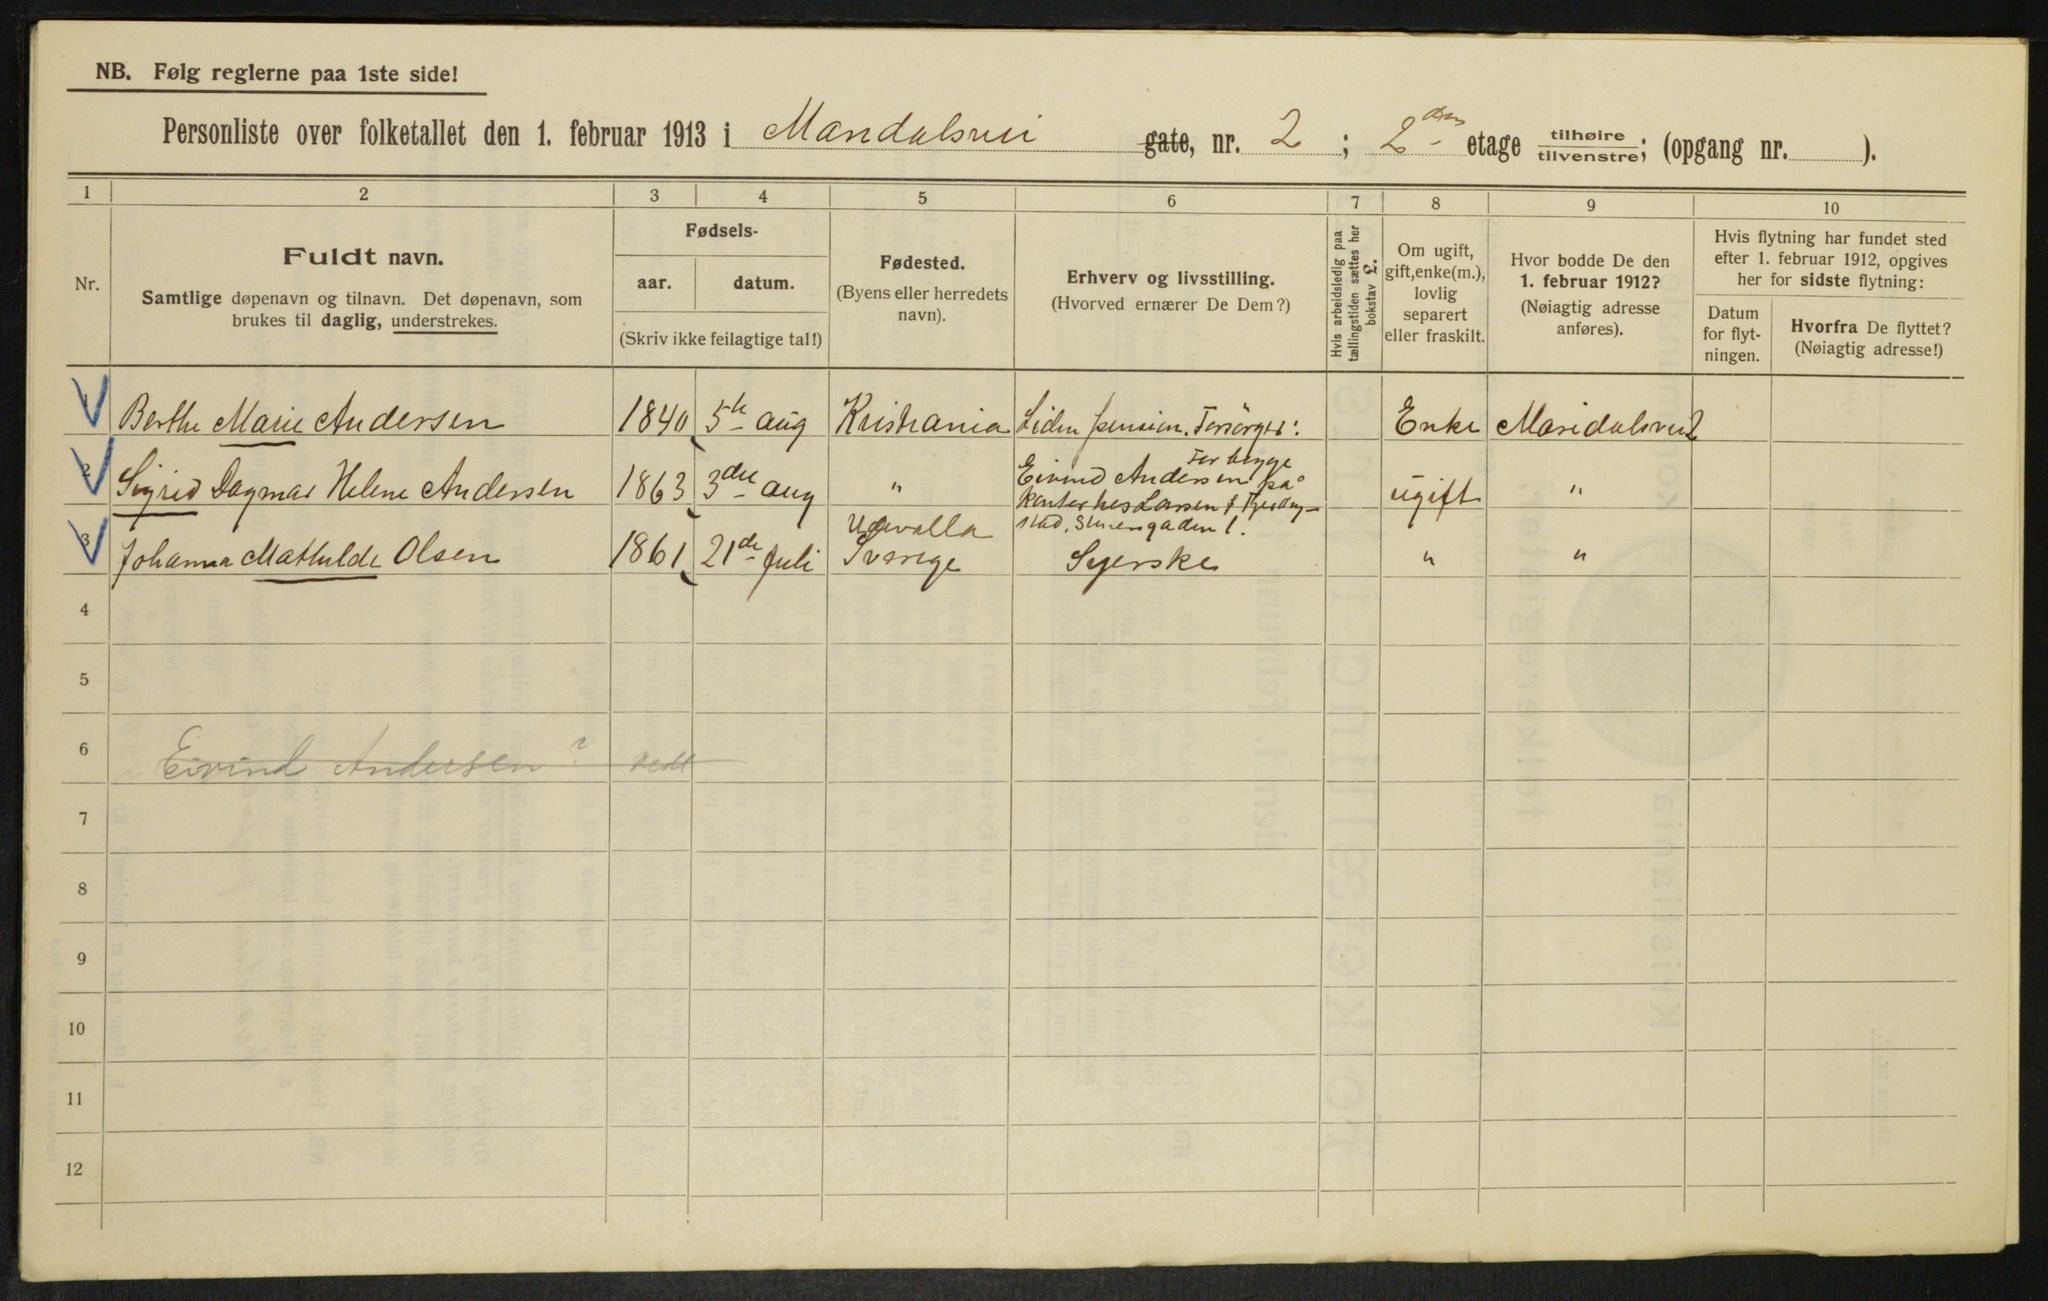 NB. Følg reglerne paa 1ste side!
Personliste over folketallet den 1. februar 1913 i Maridalsvei gate, nr. 2 ; 2den etage tilhøire tilvenstre; (opgang nr. ).
1 2 3 4 5 6 7 8 9 10
Nr.
Fuldt navn.
Samtlige døpenavn og tilnavn. Det døpenavn, som
brukes til daglig, understrekes.
Fødsels-
aar. datum.
(Skriv ikke feilagtige tal!)
Fødested.
(Byens eller herredets
navn).
Erhverv og livsstilling.
(Hvorved ernærer De Dem?)
Hvis arbeidsledig paa
tællingstiden sættes her
bokstav L.
Om ugift,
gift, enke(m.),
lovlig
separert
eller fraskilt.
Hvor bodde De den
1. februar 1912?
(Nøiagtig adresse
anføres).
Hvis flytning har fundet sted
efter 1. februar 1912, opgives
her for sidste flytning:
Datum
for flyt-
ningen.
Hvorfra De flyttet?
(Nøiagtig adresse!)
1 Berthe Marie Andersen 1840 5te aug Kristiania Liden pension. Forsörger: Enke Maridalsvei 2
2 Sigrid Dagmar Helene Andersen 1863 3die aug " For begge
Eivind Andersen på
Kontor hos Larsen &
stad, Storengaden 1. ugift "
3 Johanna Mathilde Olsen 1861 21de Juli Udevalla
Sverige Syerske " "
4
5
6 Eivind Andersen?
7
8
9
10
11
12